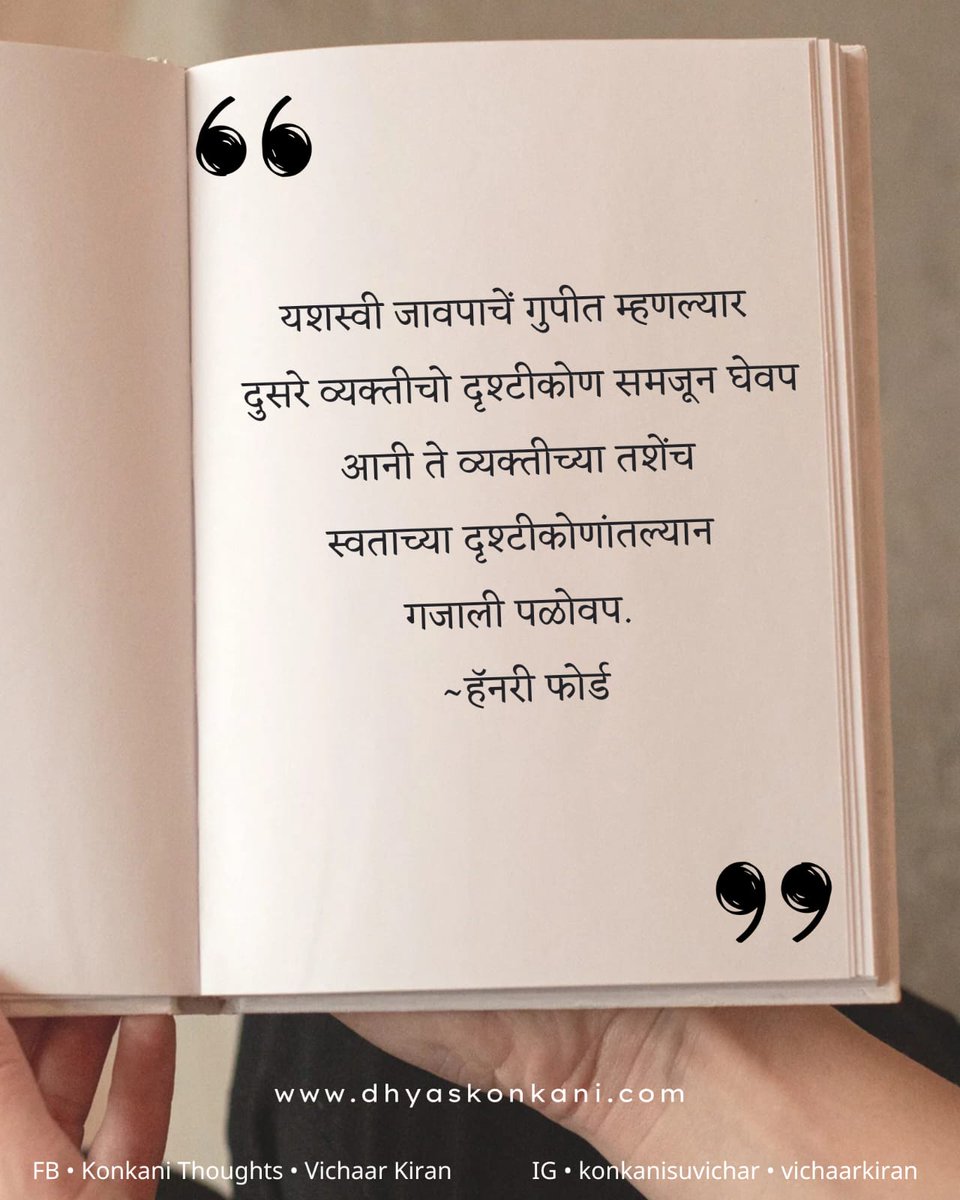 यशस्वी जावपाचें गुपीत म्हणल्यार
दुसरे व्यक्तीचो दृश्टीकोण समजून घेवप
आनी ते व्यक्तीच्या तशेंच
स्वताच्या दृश्टीकोणांतल्यान
गजाली पळोवप.
~हॅनरी फोर्ड
www.dhyaskonkani.com
FB • Konkani Thoughts • Vichaar Kiran
IG • konkanisuvichar • vichaarkiran